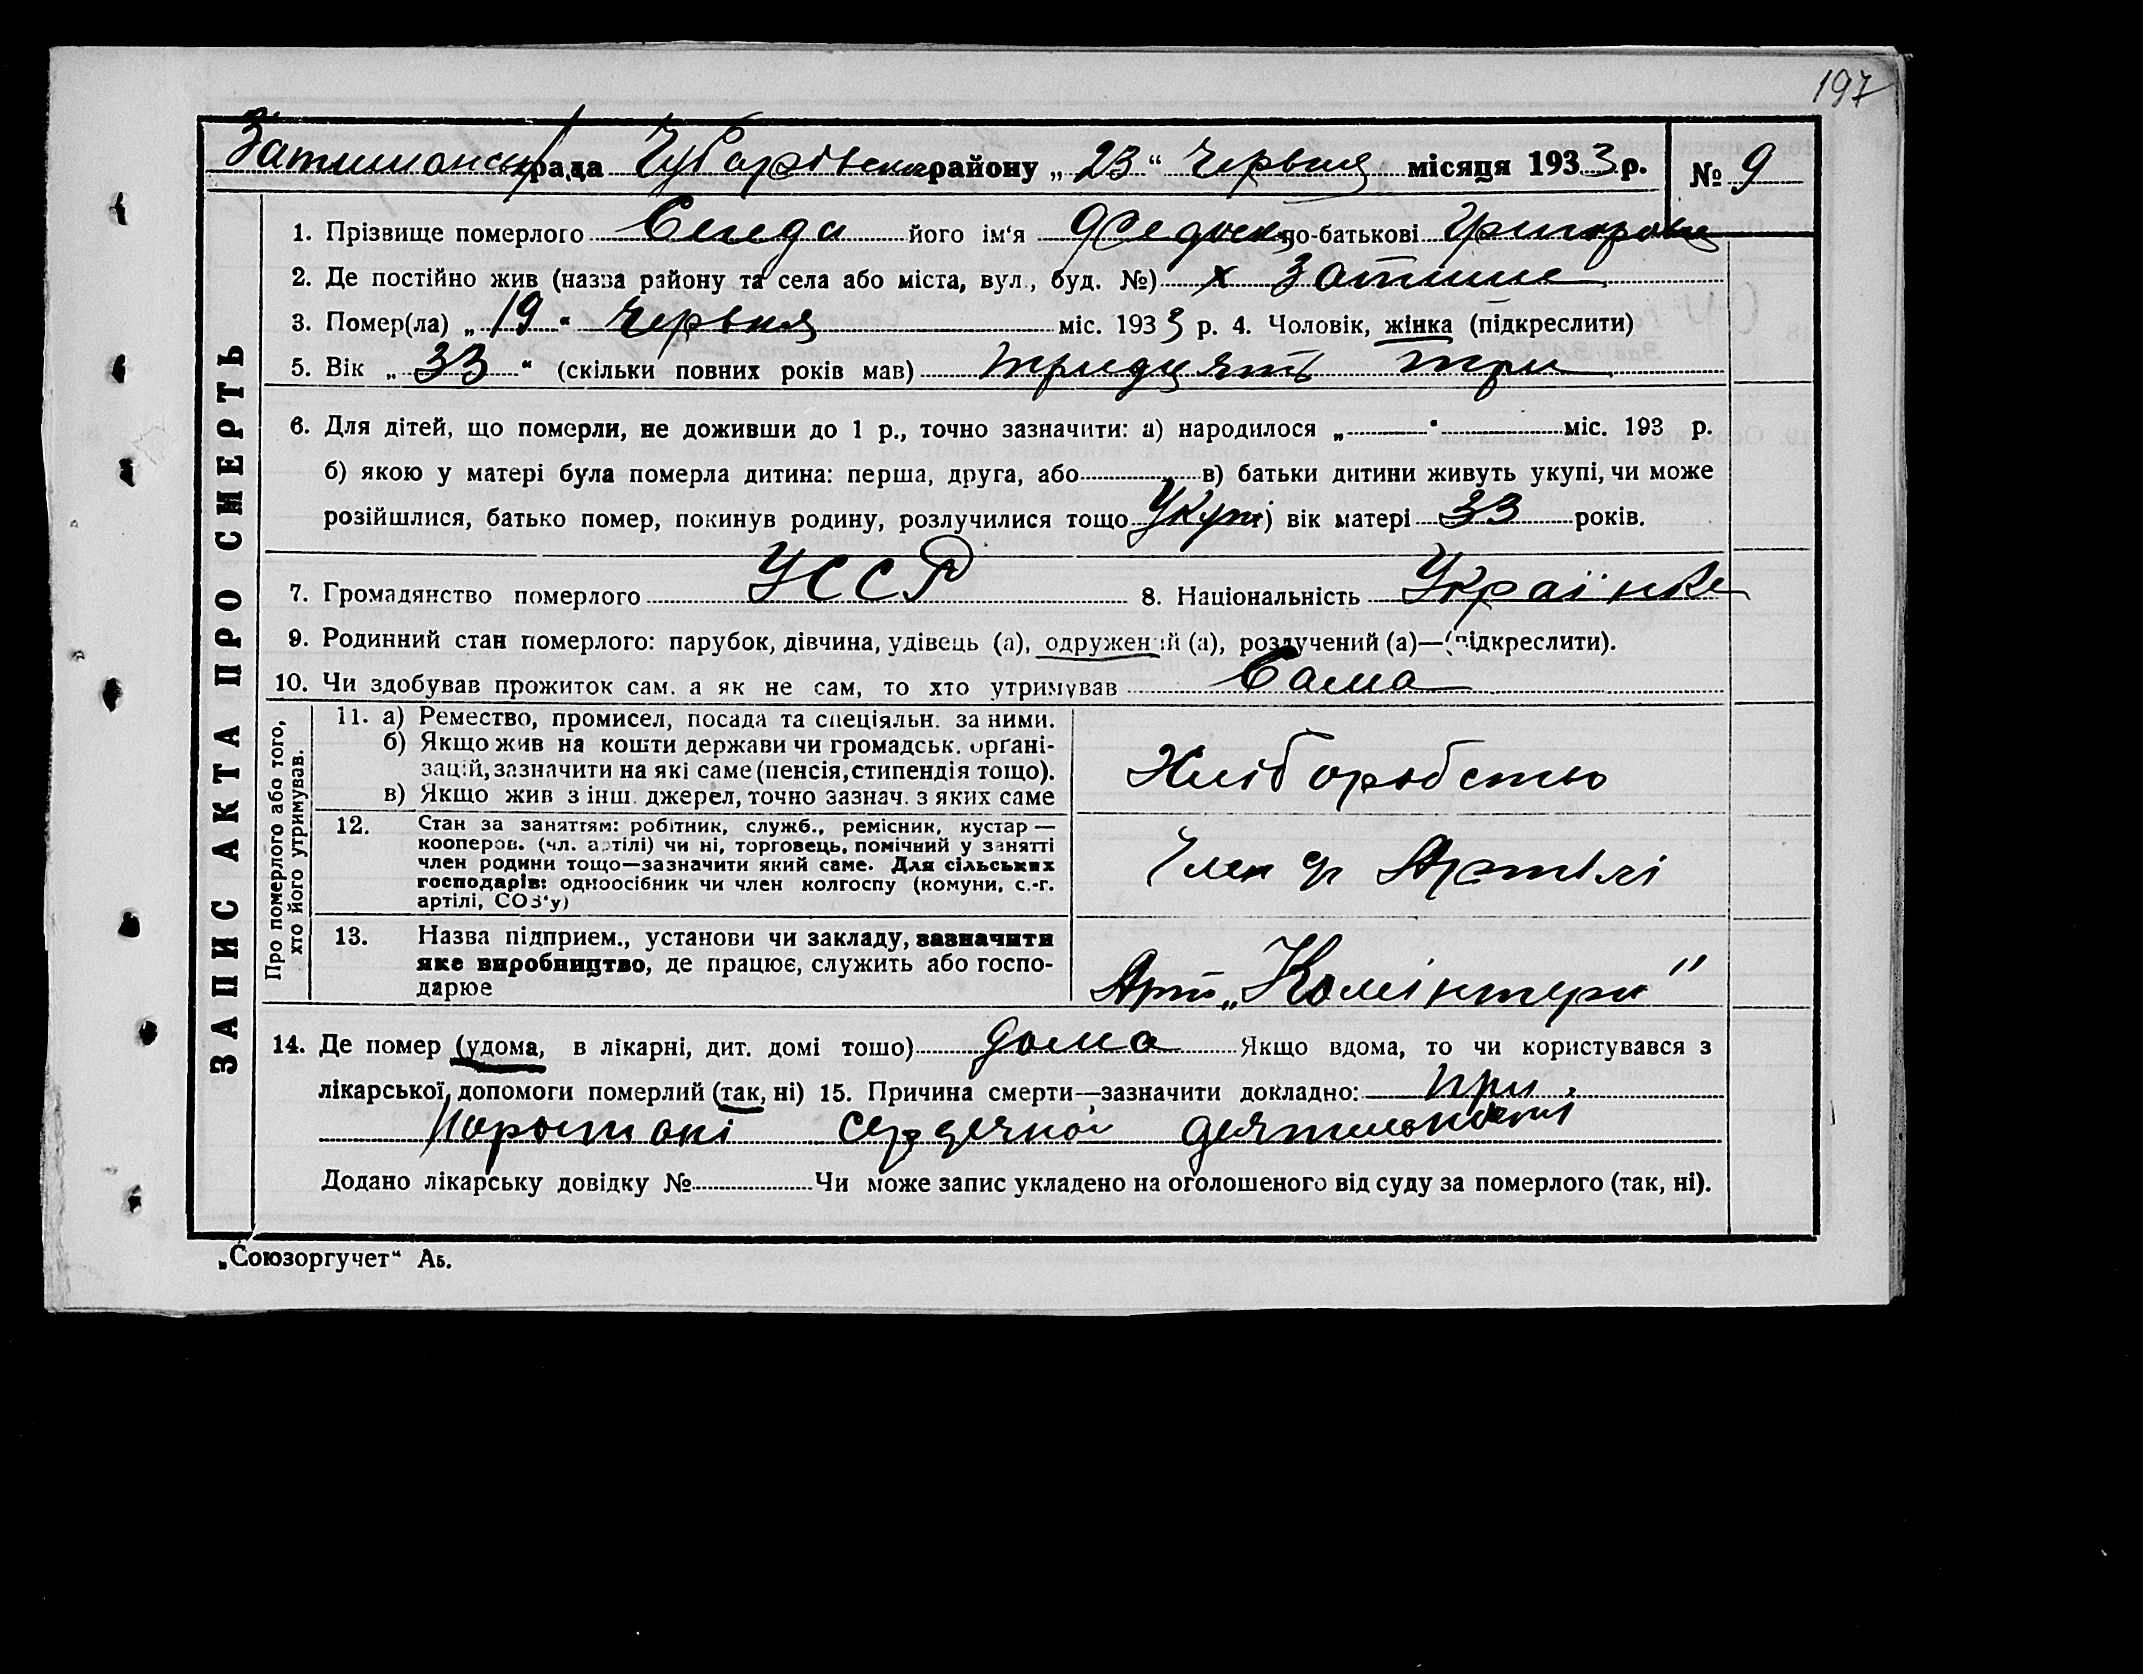 197
Затишанськ рада Чубарівськ району „23“ Червня місяця 1933 р. № 9
ЗАПИС АКТА ПРО СМЕРТЬ
1. Прізвище померлого його ім'я по-батькові
2. Де постійно жив (назва району та села або міста, вул., буд. №) х Затише
3. Помер(ла) „19“ Червня міс. 1933 р. 4. Чоловік, жінка (підкреслити)
5. Вік „33“ (скільки повних років мав) тридцять три
6. Для дітей, що померли, не доживши до 1 р., точно зазначити: а) народилося „ “ міс. 193 р.
б) якою у матері була померла дитина: перша, друга, або в) батьки дитини живуть укупі, чи може
розійшлися, батько помер, покинув родину, розлучилися тощо Укупі) вік матері 33 років.
7. Громадянство померлого УССР 8. Національність Українка
9. Родинний стан померлого: парубок, дівчина, удівець (а), одружений (а), розлучений (а)—(підкреслити).
10. Чи здобував прожиток сам. а як не сам, то хто утримував Сама
Про померлого або того,
хто його утримував.
11. а) Ремество, промисел, посада та спеціяльн. за ними.
б) Якщо жив на кошти держави чи громадськ. орґані-
зацій, зазначити на які саме (пенсія, стипендія тощо).
в) Якщо жив з інш. джерел, точно зазнач. з яких саме
Хліборобство
12. Стан за заняттям: робітник, служб., ремісник, кустар—
кооперов. (чл. артілі) чи ні, торговець, помічний у занятті
член родини тощо—зазначити який саме. Для сільських
господарів: одноосібник чи член колгоспу (комуни, с.-г.
артілі, СОЗ'у)
Член Артілі
13. Назва підприєм., установи чи закладу, зазначити
яке виробництво, де працює, служить або госпо-
дарює
Арт „Комінтерн"
14. Де помер (удома, в лікарні, дит. домі тощо) дома Якщо вдома, то чи користувався з
лікарської допомоги померлий (так, ні) 15. Причина смерти—зазначити докладно: при
сердечної деятельности
Додано лікарську довідку № Чи може запис укладено на оголошеного від суду за померлого (так, ні).
„Союзоргучет“ Аь.